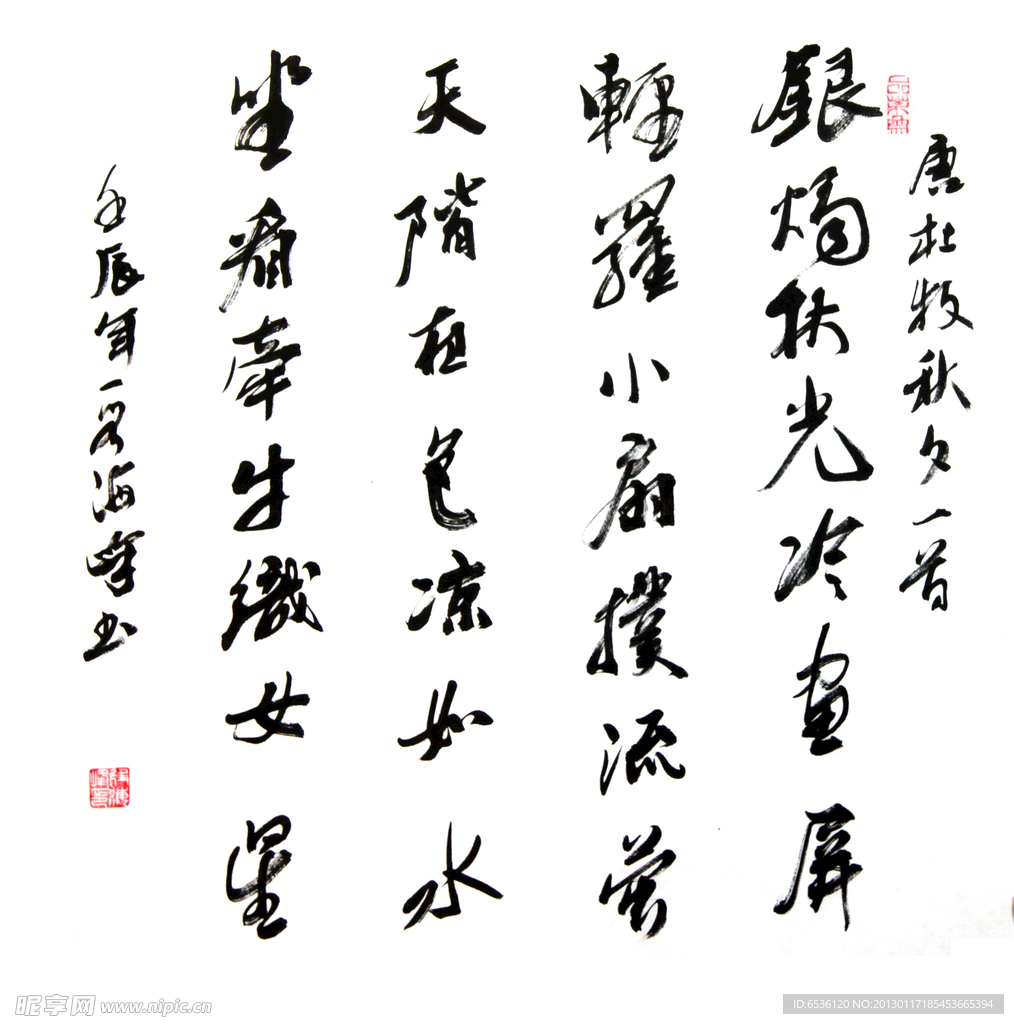 唐杜牧秋夕一首
銀燭秋光冷畫屏
輕羅小扇撲流螢
天階夜色凉如水
坐看牽牛織女星
壬辰年海峰书
昵享网 www.nipic.cn
ID:6536120 NO:20130117185453665394